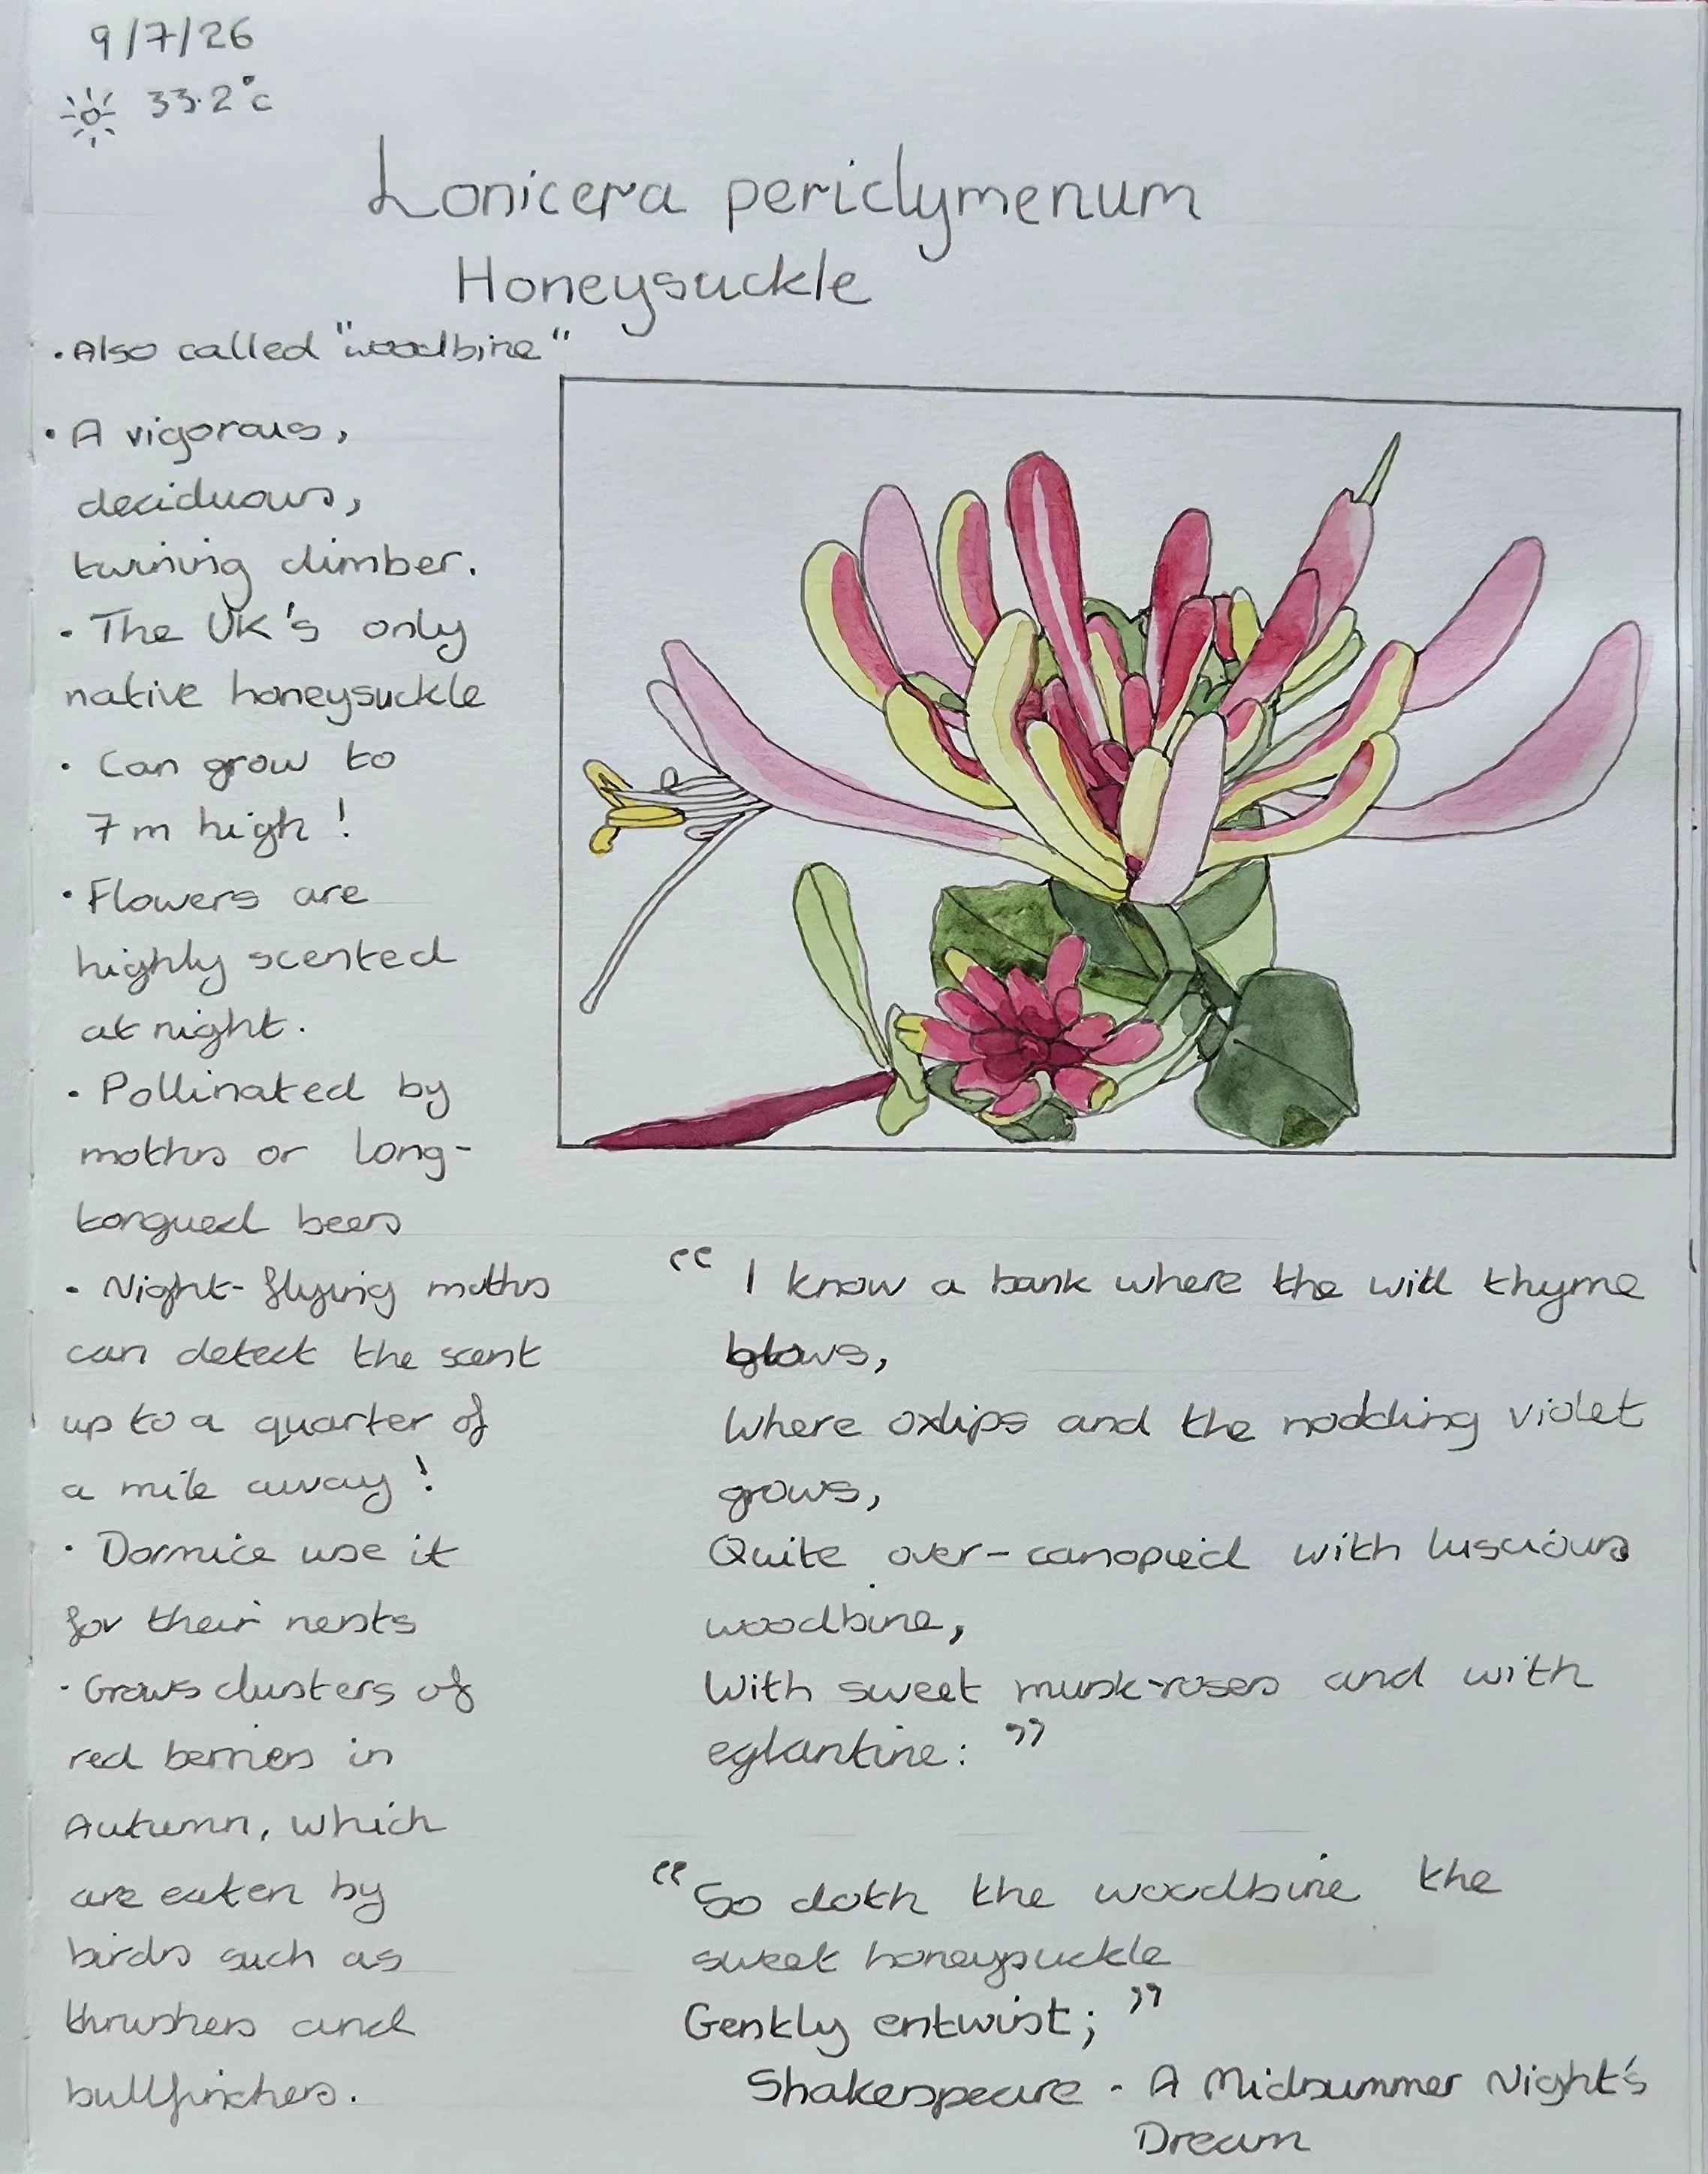 9/7/26
33.2°c
Lonicera periclymenum
Honeysuckle
• Also called "woodbine"
• A vigorous,
deciduous,
twining climber.
• The UK's only
native honeysuckle
• Can grow to
7m high!
• Flowers are
highly scented
at night.
• Pollinated by
moths or long-
tongued bees
• Night-flying moths
can detect the scent
up to a quarter of
a mile away!
• Dormice use it
for their nests
• Grows clusters of
red berries in
Autumn, which
are eaten by
birds such as
thrushes and
bullfinches.
"I know a bank where the wild thyme
blows,
Where oxlips and the nodding violet
grows,
Quite over-canopied with luscious
woodbine,
With sweet musk-roses and with
eglantine:"
"So doth the woodbine the
sweet honeysuckle
Gently entwist;"
Shakespeare - A Midsummer Night's
Dream